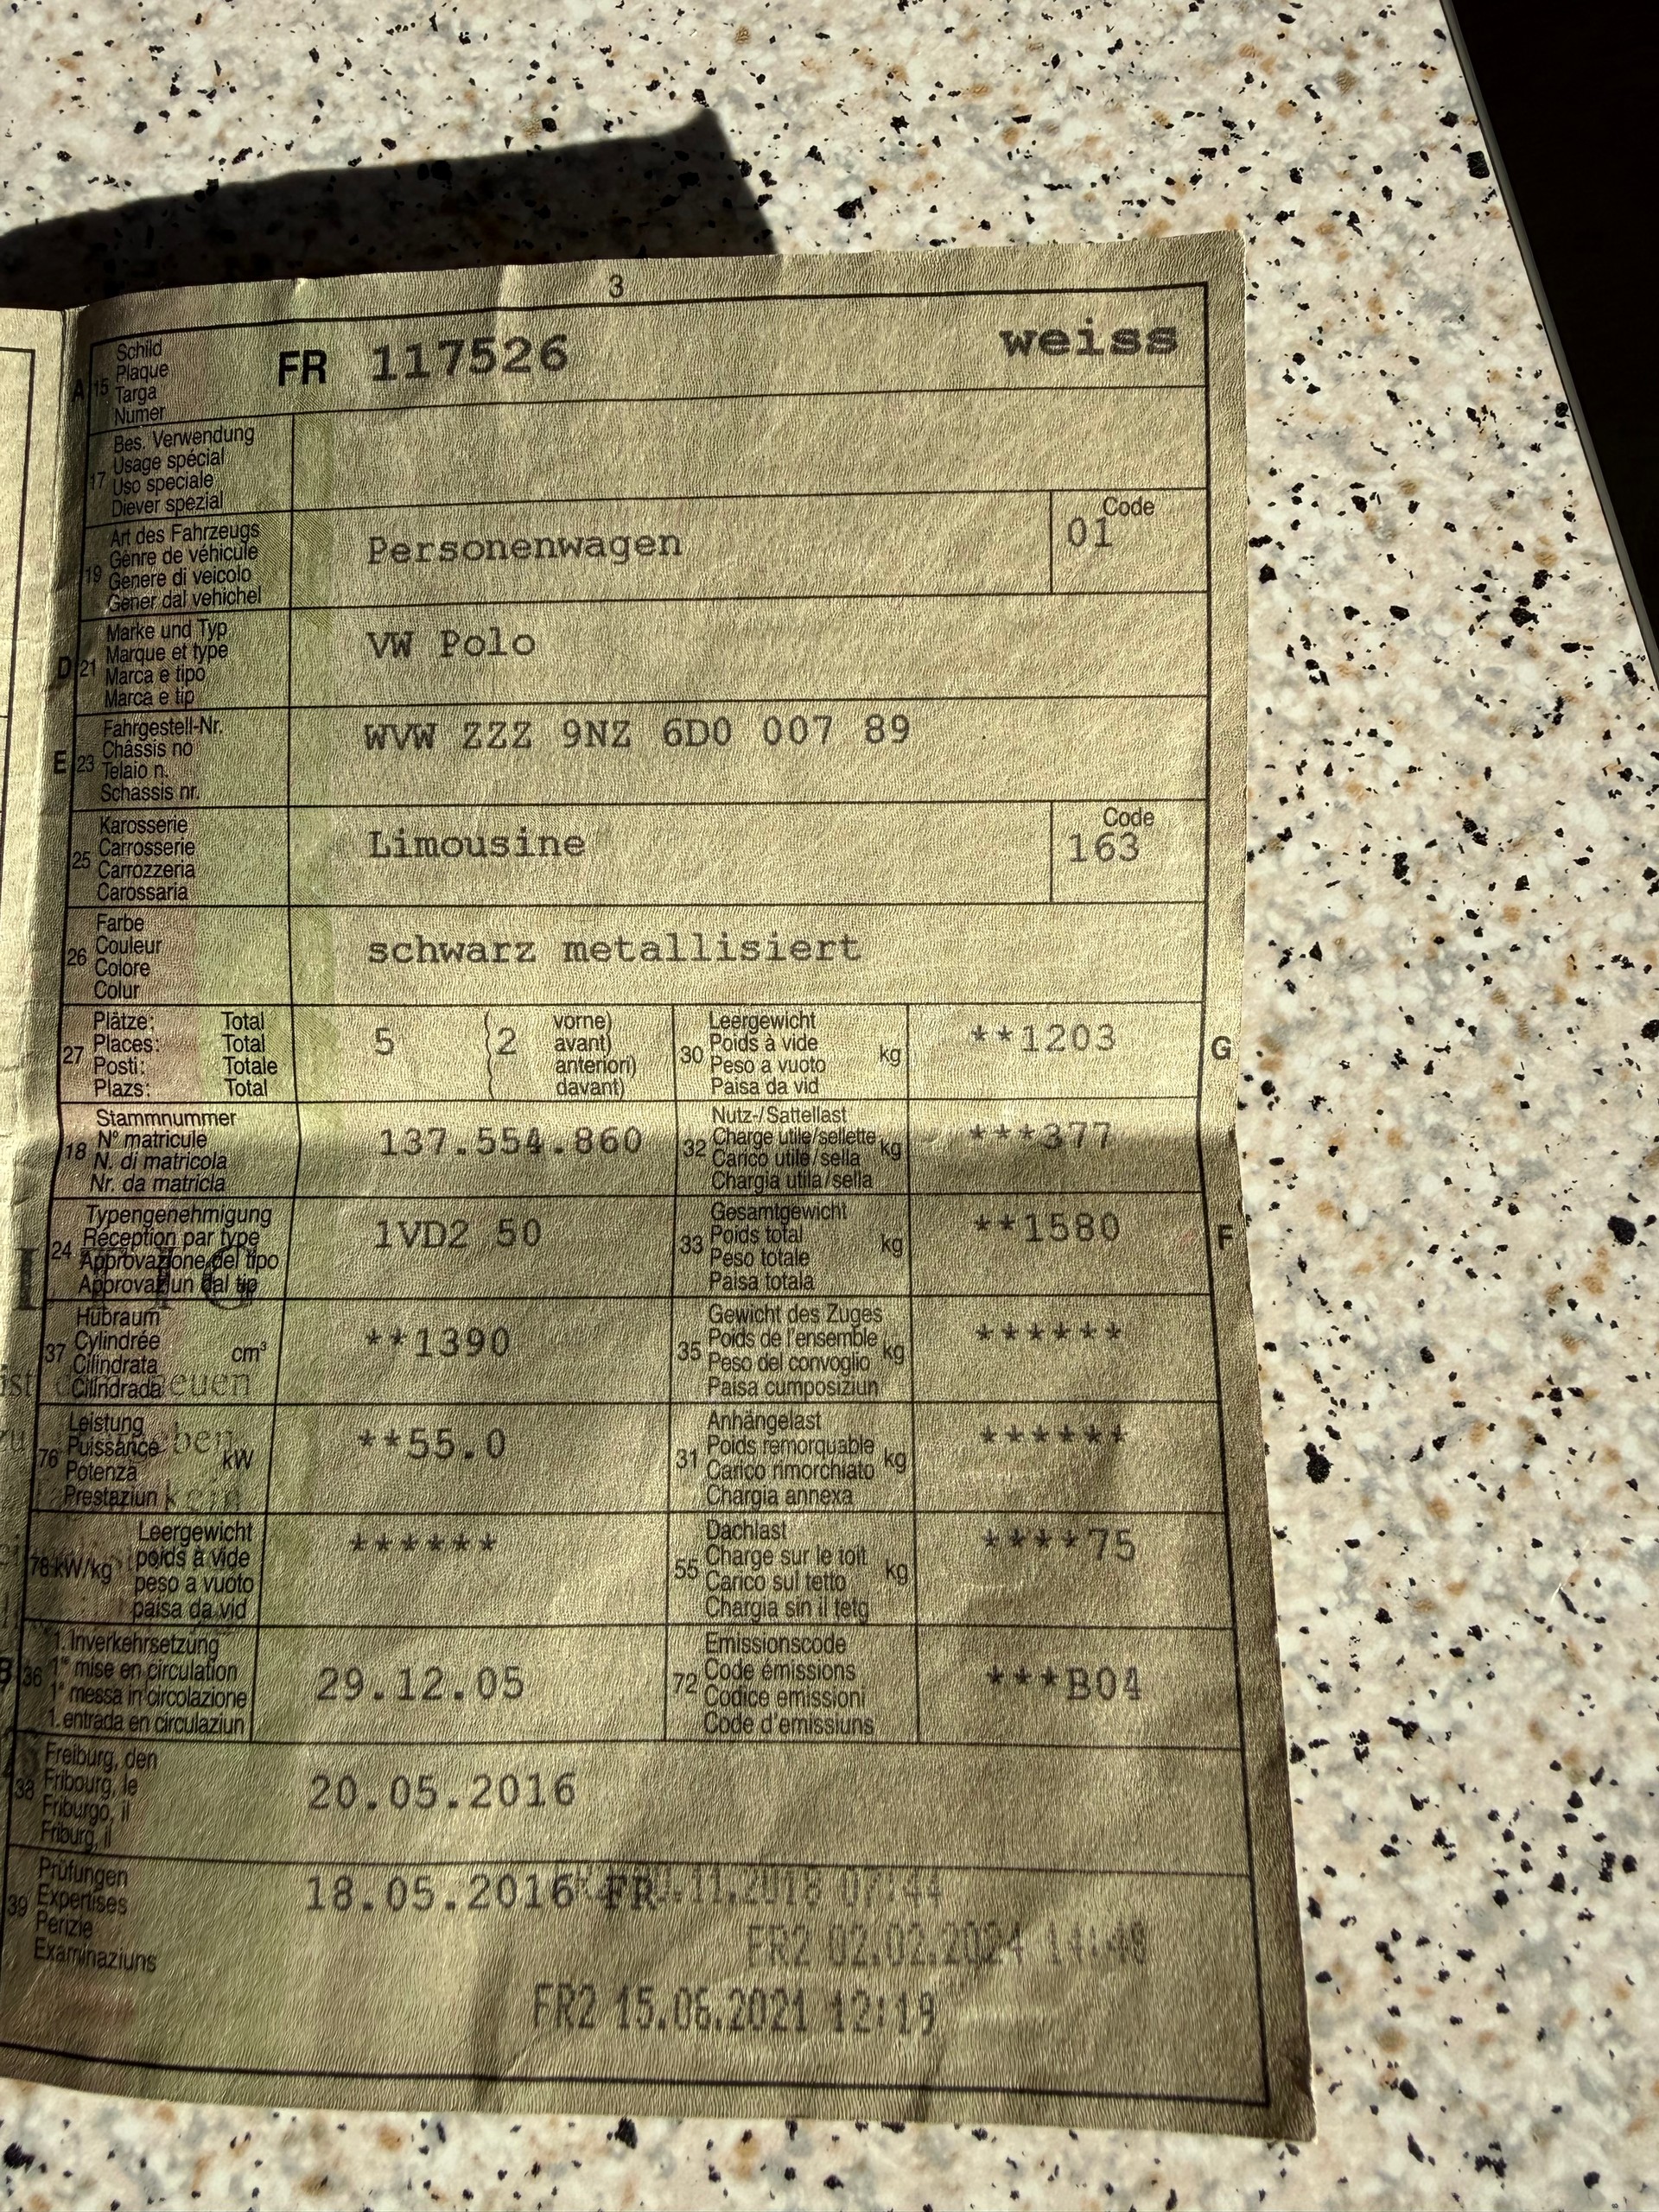 3
A 15 Schild
Plaque
Targa
Numer
FR 117526 weiss
17 Bes. Verwendung
Usage spécial
Uso speciale
Diever spezial
19 Art des Fahrzeugs
Genre de véhicule
Genere di veicolo
Gener dal vehichel
Personenwagen
Code
01
D 21 Marke und Typ
Marque et type
Marca e tipo
Marca e tip
VW Polo
E 23 Fahrgestell-Nr.
Châssis no
Telaio n.
Schassis nr.
WVW ZZZ 9NZ 6D0 007 89
25 Karosserie
Carrosserie
Carrozzeria
Carossaria
Limousine
Code
163
26 Farbe
Couleur
Colore
Colur
schwarz metallisiert
27 Plätze: Total
Places: Total
Posti: Totale
Plazs: Total
5 (2 vorne)
avant)
anteriori)
davant)
30 Leergewicht
Poids à vide kg
Peso a vuoto
Paisa da vid
**1203
G
18 Stammnummer
N° matricule
N. di matricola
Nr. da matricla
137.554.860
32 Nutz-/Sattellast
Charge utile/sellette kg
Carico utile/sella
Chargia utila/sella
***377
24 Typengenehmigung
Réception par type
Approvazione del tipo
Approvaziun dal tip
1VD2 50
33 Gesamtgewicht
Poids total kg
Peso totale
Paisa totala
**1580
F
37 Hubraum
Cylindrée cm³
Cilindrata
Cilindrada
**1390
35 Gewicht des Zuges
Poids de l'ensemble kg
Peso del convoglio
Paisa cumposiziun
******
76 Leistung
Puissance kW
Potenza
Prestaziun
**55.0
31 Anhängelast
Poids remorquable kg
Carico rimorchiato
Chargia annexa
******
78 kW/kg Leergewicht
poids à vide
peso a vuoto
paisa da vid
******
55 Dachlast
Charge sur le toit kg
Carico sul tetto
Chargia sin il tetg
****75
B 36 1. Inverkehrsetzung
1re mise en circulation
1a messa in circolazione
1. entrada en circulaziun
29.12.05
72 Emissionscode
Code émissions
Codice emissioni
Code d'emissiuns
***B04
38 Freiburg, den
Fribourg, le
Friburgo, il
Friburg, il
20.05.2016
39 Prüfungen
Expertises
Perizie
Examinaziuns
18.05.2016 FR
.11.2018 07:44
FR2 02.02.2024 14:48
FR2 15.06.2021 12:19